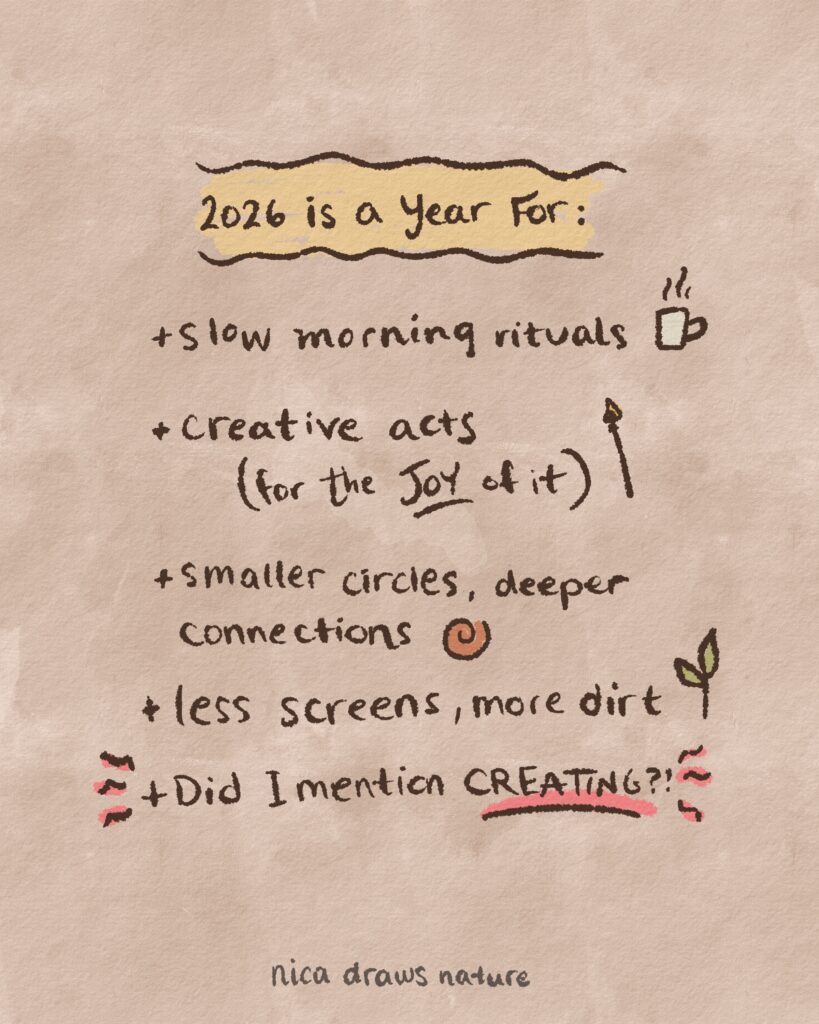 2026 is a Year For:
+ slow morning rituals
+ creative acts
(for the JOY of it)
+ smaller circles, deeper
connections
+ less screens, more dirt
+ Did I mention CREATING?!
nica draws nature